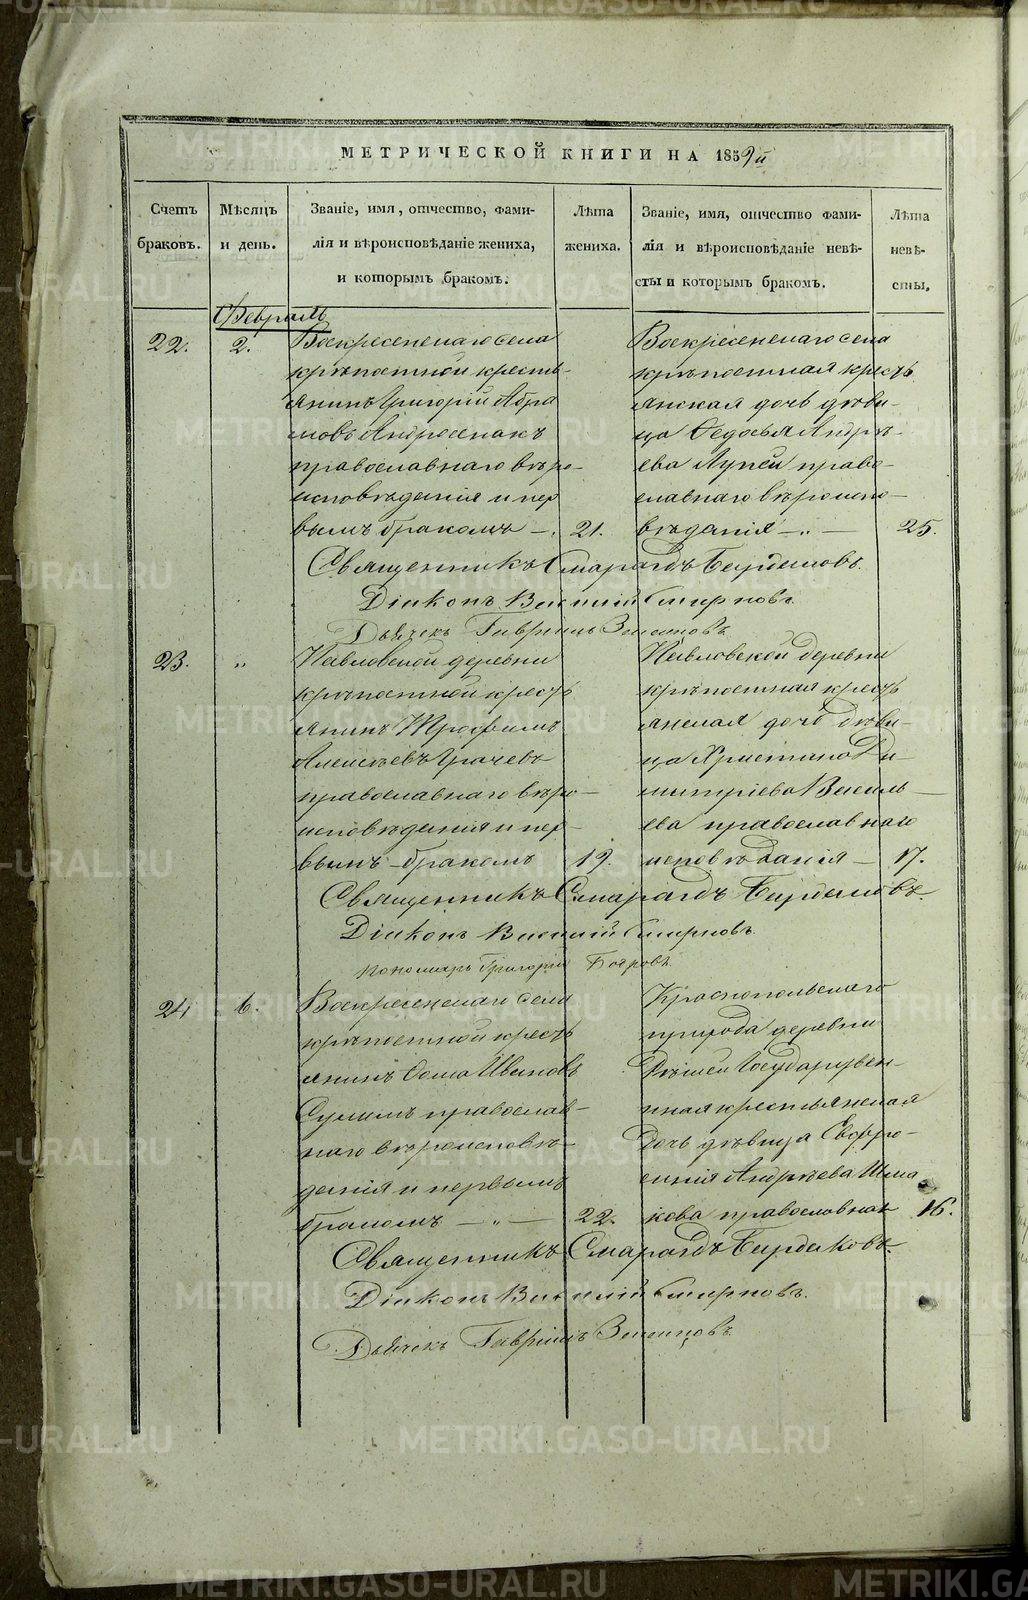 МЕТРИЧЕСКОЙ КНИГИ НА 1859й
Счетъ браковъ.
Мѣсяцъ и день.
Званіе, имя, отчество, фами-
лія и вѣроисповѣданіе жениха,
и которымъ бракомъ.
Лѣта жениха.
Званіе, имя, отчество фами-
лія и вѣроисповѣданіе невѣ-
сты и которымъ бракомъ.
Лѣта невѣ-
сты.
Февраль
22.
2.
Воскресенскаго села
крѣпостной кресть-
янинъ Григорій Абра
мовъ
православнаго вѣро-
исповѣданія и пер
вымъ бракомъ —.
21.
Воскресенскаго села
крѣпостная кресть
янская дочь дѣви-
ца Ѳедосья Андрѣ-
ева право-
славнаго вѣроиспо-
вѣданія —„—
25.
Священникъ Смарагдъ
Діаконъ Василій Смирновъ
Дьячекъ Гавріилъ
23.
„
Павловской деревни
крѣпостной кресть
янинъ Трофимъ
Алексѣевъ Грачевъ
православнаго вѣро-
исповѣданія и пер-
вымъ бракомъ
19.
Павловской деревни
крѣпостная кресть
янская дочь дѣви-
ца Христина Ди-
митріева Василь-
ева православнаго
исповѣданія —
17.
Священникъ Смарагдъ
Діаконъ Василій Смирновъ
Пономарь Григорій
24
6.
Воскресенскаго села
крѣпостной кресть
янинъ Ѳома Ивановъ
православ-
наго вѣроисповѣ-
данія и первымъ
бракомъ —„—
22.
Краснопольскаго
прихода деревни
Государствен-
ная крестьянская
дочь дѣвица Евфро-
синія Андрѣева Шма
кова православная
16.
Священникъ Смарагдъ
Діаконъ Василій Смирновъ.
Дьячекъ Гавріилъ
METRIKI.GASO-URAL.RU